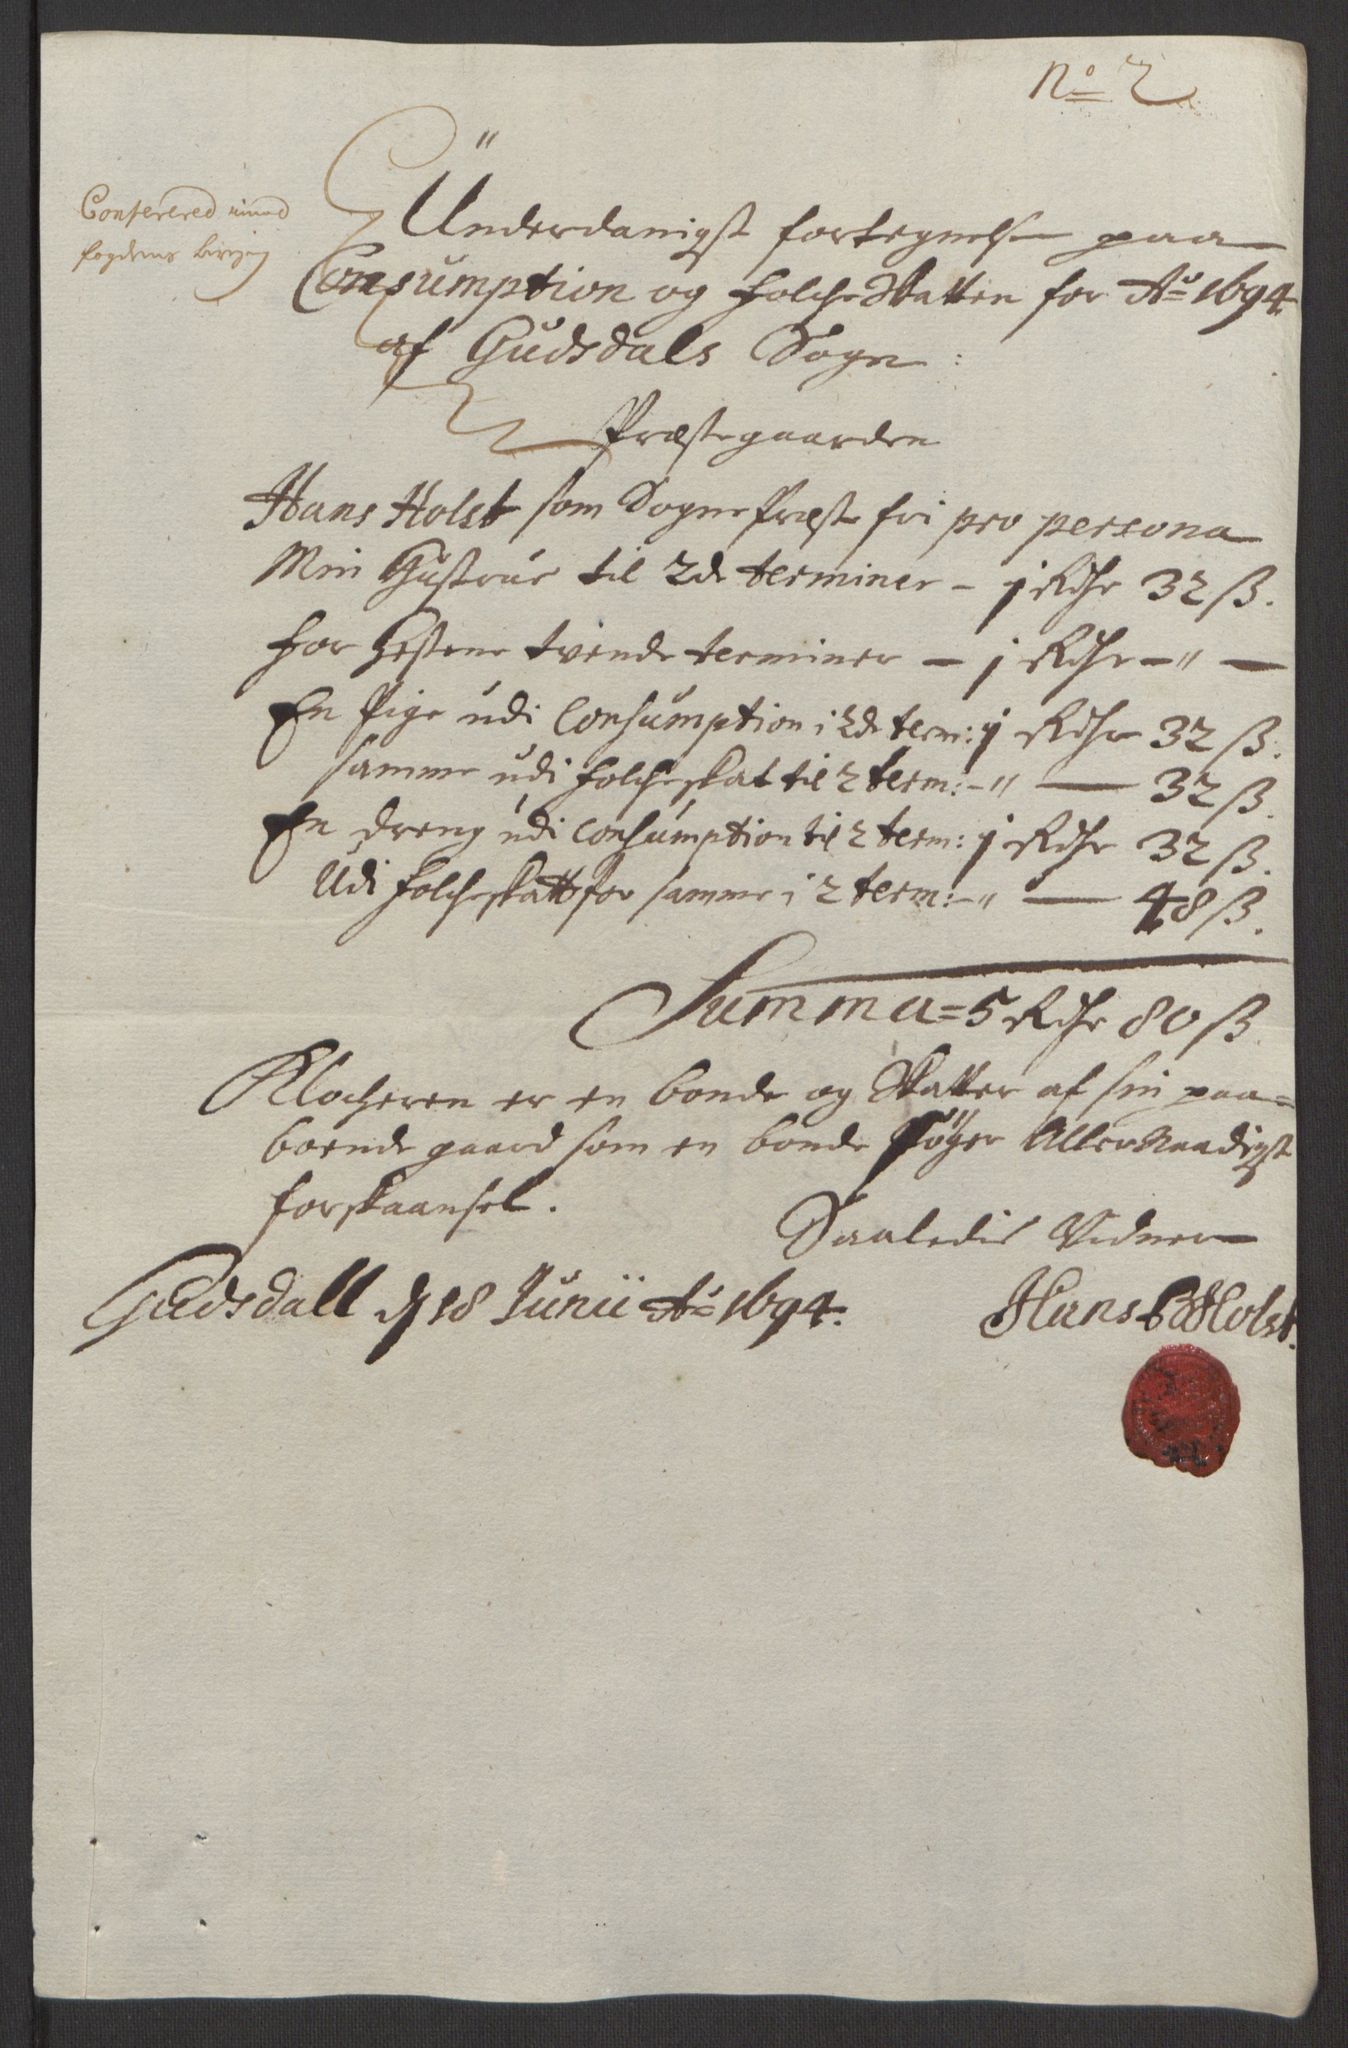 No 2
Conferered imod
fogdens
Underdanigst fortegnelse paa
Consumption og folche Skatten for Ao 1694
af Gudsdals Sogn:
Præstegaarden
Hans Holst som Sogne Præst fri pro persona
Min Hustrue til 2de terminer – j Rdhr 32 ß.
for Hestene tvende terminer – j Rdhr – " –
En Pige udi Consumption i 2de term: j Rdhr 32 ß.
samme udi folcheskat til 2 term: – " — 32 ß.
En dreng udi Consumption til 2 term: j Rdhr 32 ß.
Udi folcheskatt for samme i 2 term: – " — 48 ß.
Summa = 5 Rdhr 80 ß.
Klocheren er en bonde og Skatter af sin paa=
boende gaard som en bonde Søger Allernaadigst
forskaansel.
Saaledis Vidner
Gudsdall d 18 Junii Ao 1694.
Hans Holst.